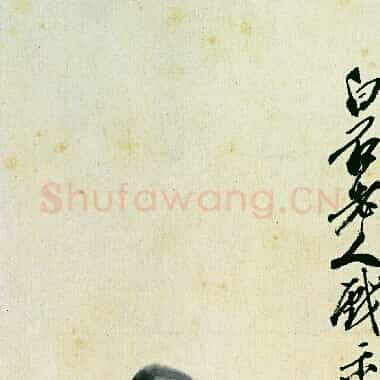 白石老人戲
Shufawang.CN